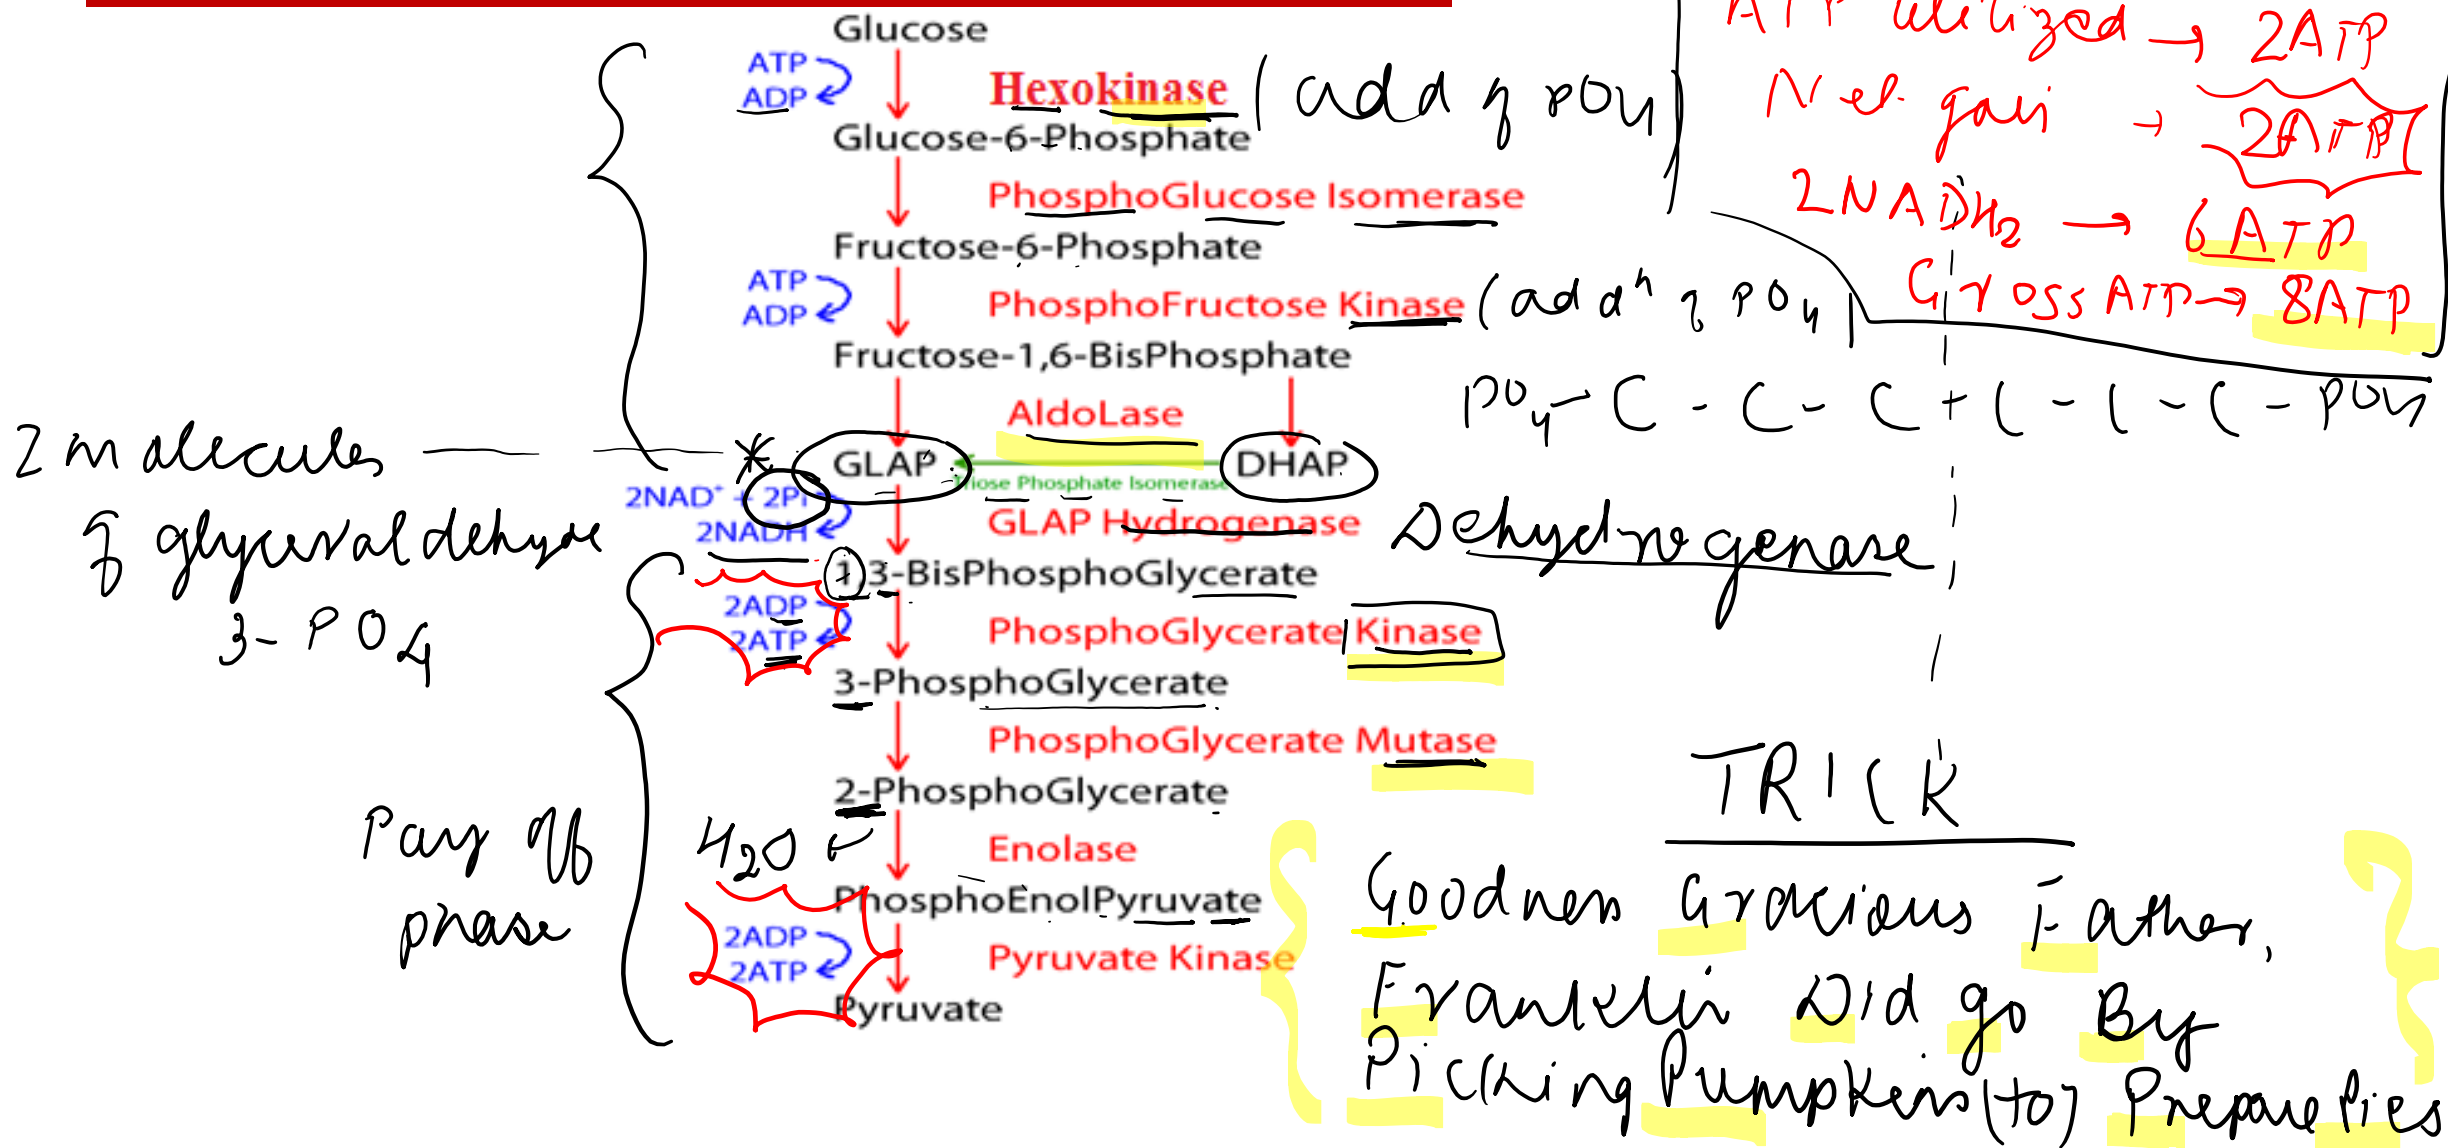 Glucose
ATP
ADP
Hexokinase (add of PO4)
Glucose-6-Phosphate
PhosphoGlucose Isomerase
Fructose-6-Phosphate
ATP
ADP
PhosphoFructose Kinase (addn of PO4)
Fructose-1,6-BisPhosphate
AldoLase
GLAP
DHAP
Triose Phosphate Isomerase
2NAD+ + 2Pi
2NADH
GLAP Hydrogenase Dehydrogenase
1,3-BisPhosphoGlycerate
2ADP
2ATP
PhosphoGlycerate Kinase
3-PhosphoGlycerate
PhosphoGlycerate Mutase
2-PhosphoGlycerate
H2O
Enolase
PhosphoEnolPyruvate
2ADP
2ATP
Pyruvate Kinase
Pyruvate
2 molecules
of glyceraldehyde
3-PO4
Pay off
phase
ATP utilized → 2ATP
Net gain → 2ATP
2NADH2 → 6ATP
Gross ATP → 8ATP
PO4 - C - C - C + C - C - C - PO4
TRICK
Goodness Gracious Father,
Franklin Did go By
Picking Pumpkins (to) Prepare Pies